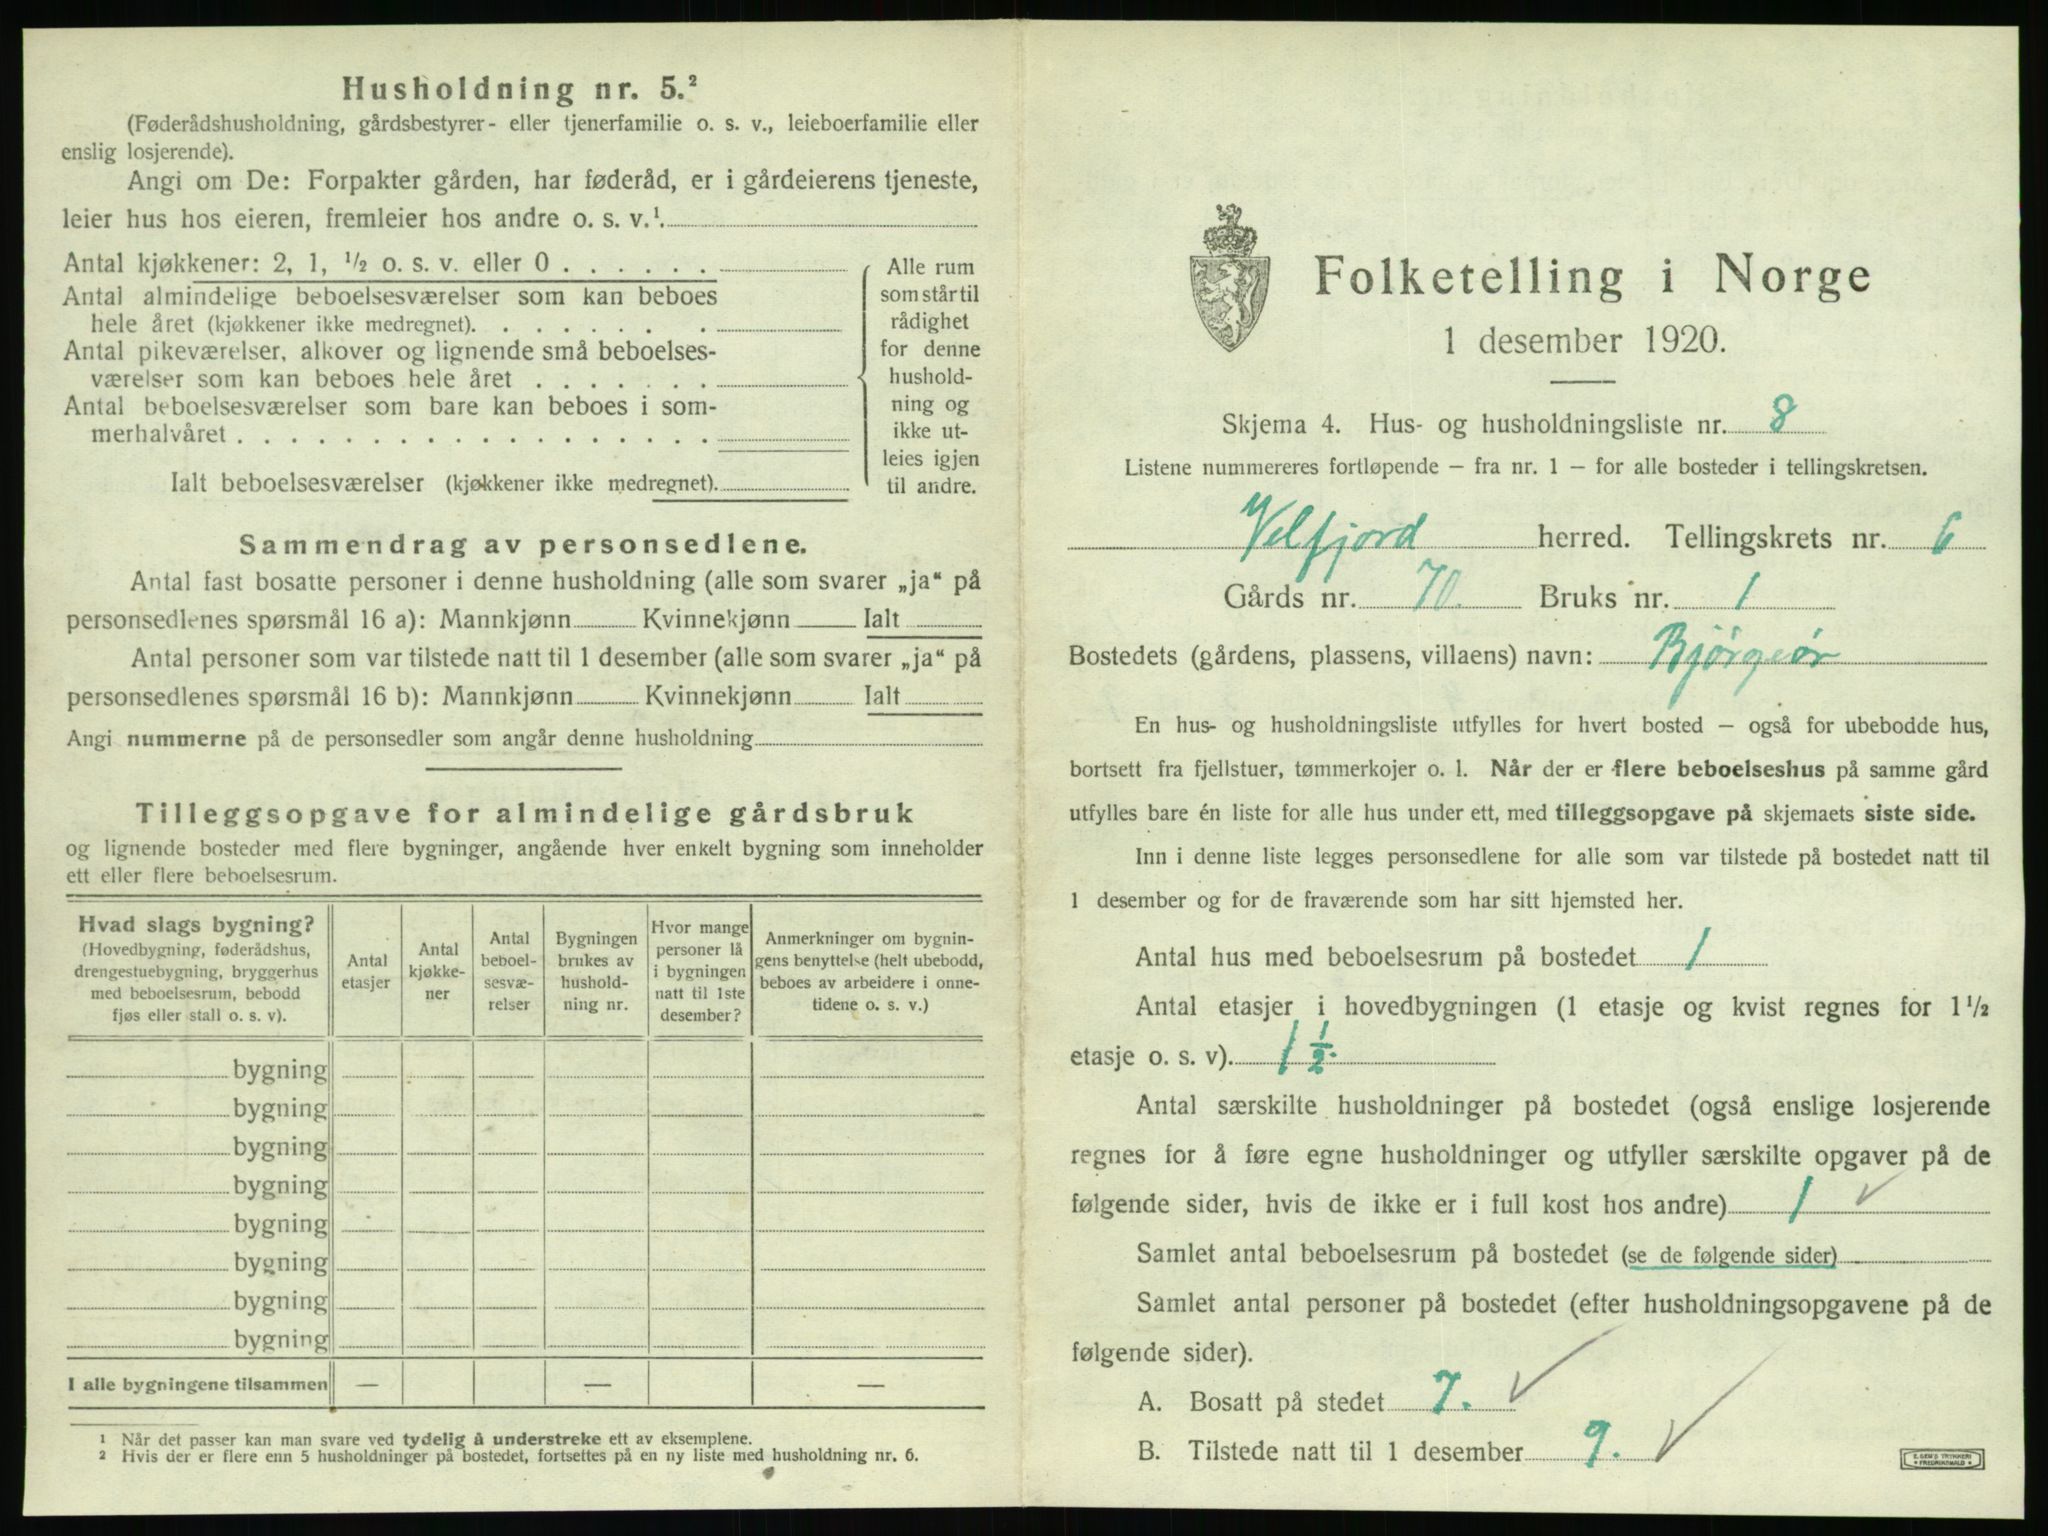 Husholdning nr. 5.²
(Føderådshusholdning, gårdsbestyrer- eller tjenerfamilie o. s. v., leieboerfamilie eller
enslig losjerende).
Angi om De: Forpakter gården, har føderåd, er i gårdeierens tjeneste,
leier hus hos eieren, fremleier hos andre o. s. v.¹.
Antal kjøkkener: 2, 1, ½ o. s. v. eller 0 . . . . . .
Antal almindelige beboelsesværelser som kan beboes
hele året (kjøkkener ikke medregnet). . . . . . . .
Antal pikeværelser, alkover og lignende små beboelses-
værelser som kan beboes hele året . . . . . . .
Antal beboelsesværelser som bare kan beboes i som-
merhalvåret . . . . . . . . . . . . . . . . . .
Ialt beboelsesværelser (kjøkkener ikke medregnet).
Alle rum
som står til
rådighet
for denne
hushold-
ning og
ikke ut-
leies igjen
til andre.
Sammendrag av personsedlene.
Antal fast bosatte personer i denne husholdning (alle som svarer „ja“ på
personsedlenes spørsmål 16 a): Mannkjønn Kvinnekjønn Ialt
Antal personer som var tilstede natt til 1 desember (alle som svarer „ja“ på
personsedlenes spørsmål 16 b): Mannkjønn Kvinnekjønn Ialt
Angi nummerne på de personsedler som angår denne husholdning
Tilleggsopgave for almindelige gårdsbruk
og lignende bosteder med flere bygninger, angående hver enkelt bygning som inneholder
ett eller flere beboelsesrum.
Hvad slags bygning?
(Hovedbygning, føderådshus,
drengestuebygning, bryggerhus
med beboelsesrum, bebodd
fjøs eller stall o. s. v).
Antal
etasjer
Antal
kjøkke-
ner
Antal
beboel-
sesvæ-
relser
Bygningen
brukes av
hushold-
ning nr.
Hvor mange
personer lå
i bygningen
natt til 1ste
desember?
Anmerkninger om bygnin-
gens benyttelse (helt ubebodd,
beboes av arbeidere i onne-
tidene o. s. v.)
bygning
bygning
bygning
bygning
bygning
bygning
bygning
bygning
I alle bygningene tilsammen — — —
¹ Når det passer kan man svare ved tydelig å understreke ett av eksemplene.
² Hvis der er flere enn 5 husholdninger på bostedet, fortsettes på en ny liste med husholdning nr. 6.
Folketelling i Norge
1 desember 1920.
Skjema 4. Hus- og husholdningsliste nr. 8
Listene nummereres fortløpende – fra nr. 1 – for alle bosteder i tellingskretsen.
Velfjord herred. Tellingskrets nr. 6
Gårds nr. 70. Bruks nr. 1
Bostedets (gårdens, plassens, villaens) navn: Bjørgeør
En hus- og husholdningsliste utfylles for hvert bosted – også for ubebodde hus,
bortsett fra fjellstuer, tømmerkojer o. l. Når der er flere beboelseshus på samme gård
utfylles bare én liste for alle hus under ett, med tilleggsopgave på skjemaets siste side.
Inn i denne liste legges personsedlene for alle som var tilstede på bostedet natt til
1 desember og for de fraværende som har sitt hjemsted her.
Antal hus med beboelsesrum på bostedet 1
Antal etasjer i hovedbygningen (1 etasje og kvist regnes for 1½
etasje o. s. v). 1 ½.
Antal særskilte husholdninger på bostedet (også enslige losjerende
regnes for å føre egne husholdninger og utfyller særskilte opgaver på de
følgende sider, hvis de ikke er i full kost hos andre) 1 ✓
Samlet antal beboelsesrum på bostedet (se de følgende sider)
Samlet antal personer på bostedet (efter husholdningsopgavene på de
følgende sider).
A. Bosatt på stedet 7. ✓
B. Tilstede natt til 1 desember 9. ✓